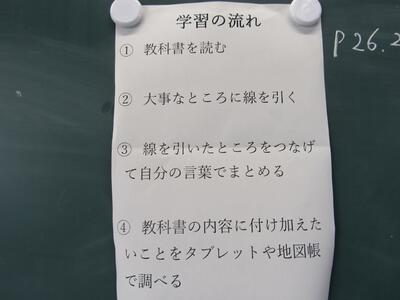 学習の流れ
① 教科書を読む
② 大事なところに線を引く
③ 線を引いたところをつなげ
て自分の言葉でまとめる
④ 教科書の内容に付け加えた
いことをタブレットや地図帳
で調べる
P26.2